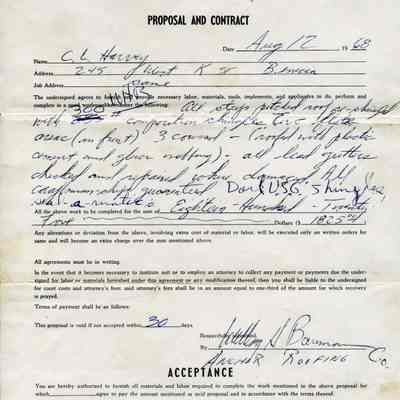 PROPOSAL AND CONTRACT
Date Aug 12 1968
Name C L Harvey
Address 245 West K St Benicia
Job Address Same
The undersigned agrees to furnish necessary labor, materials, tools, implements, and applicates to do perform and
complete in a the following: All steep pitched roof
300 composition shingles
areas (in front) 3 coursed - with plastic
cement and - all lead gutters
checked and repaired where damaged All
guaranteed Dark U.S.G. Shingles
All the above work to be completed for the sum of Eighteen-Hundred - Twenty
Five Dollars () 1825
Any alterations or deviation from the above, involving extra cost of material or labor, will be executed only on written orders for
same and will become an extra charge over the sum mentioned above.
All agreements must be in writing.
In the event that it becomes necessary to institute suit or to employ an attorney to collect any payment or payments due the under-
signed for labor or materials furnished under this agreement or any modification thereof, then you shall be liable to the undersigned
for court costs and attorney's fees; said attorney's fees shall be in an amount equal to one-third of the amount for which recovery
is prayed.
Terms of payment shall be as follows:
This proposal is void if not accepted within 30 days.
Respectfully
By
ANCHOR ROOFING Co.
ACCEPTANCE
You are hereby authorized to furnish all materials and labor required to complete the work mentioned in the above proposal for
which agree to pay the amount mentioned in said proposal and in accordance with the terms thereof.